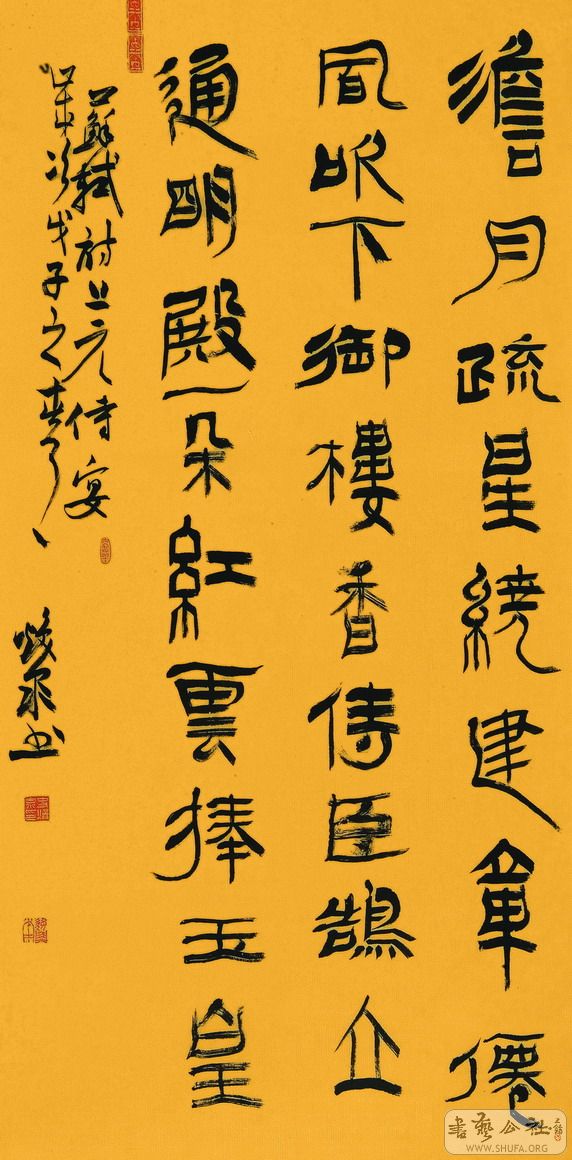 澹月疏星繞建章僊
風吹下御樓香侍臣鵠立
通明殿一朵紅雲捧玉皇
蘇軾詩上元侍宴
歲次戊子之春
書藝公社
WWW.SHUFA.ORG